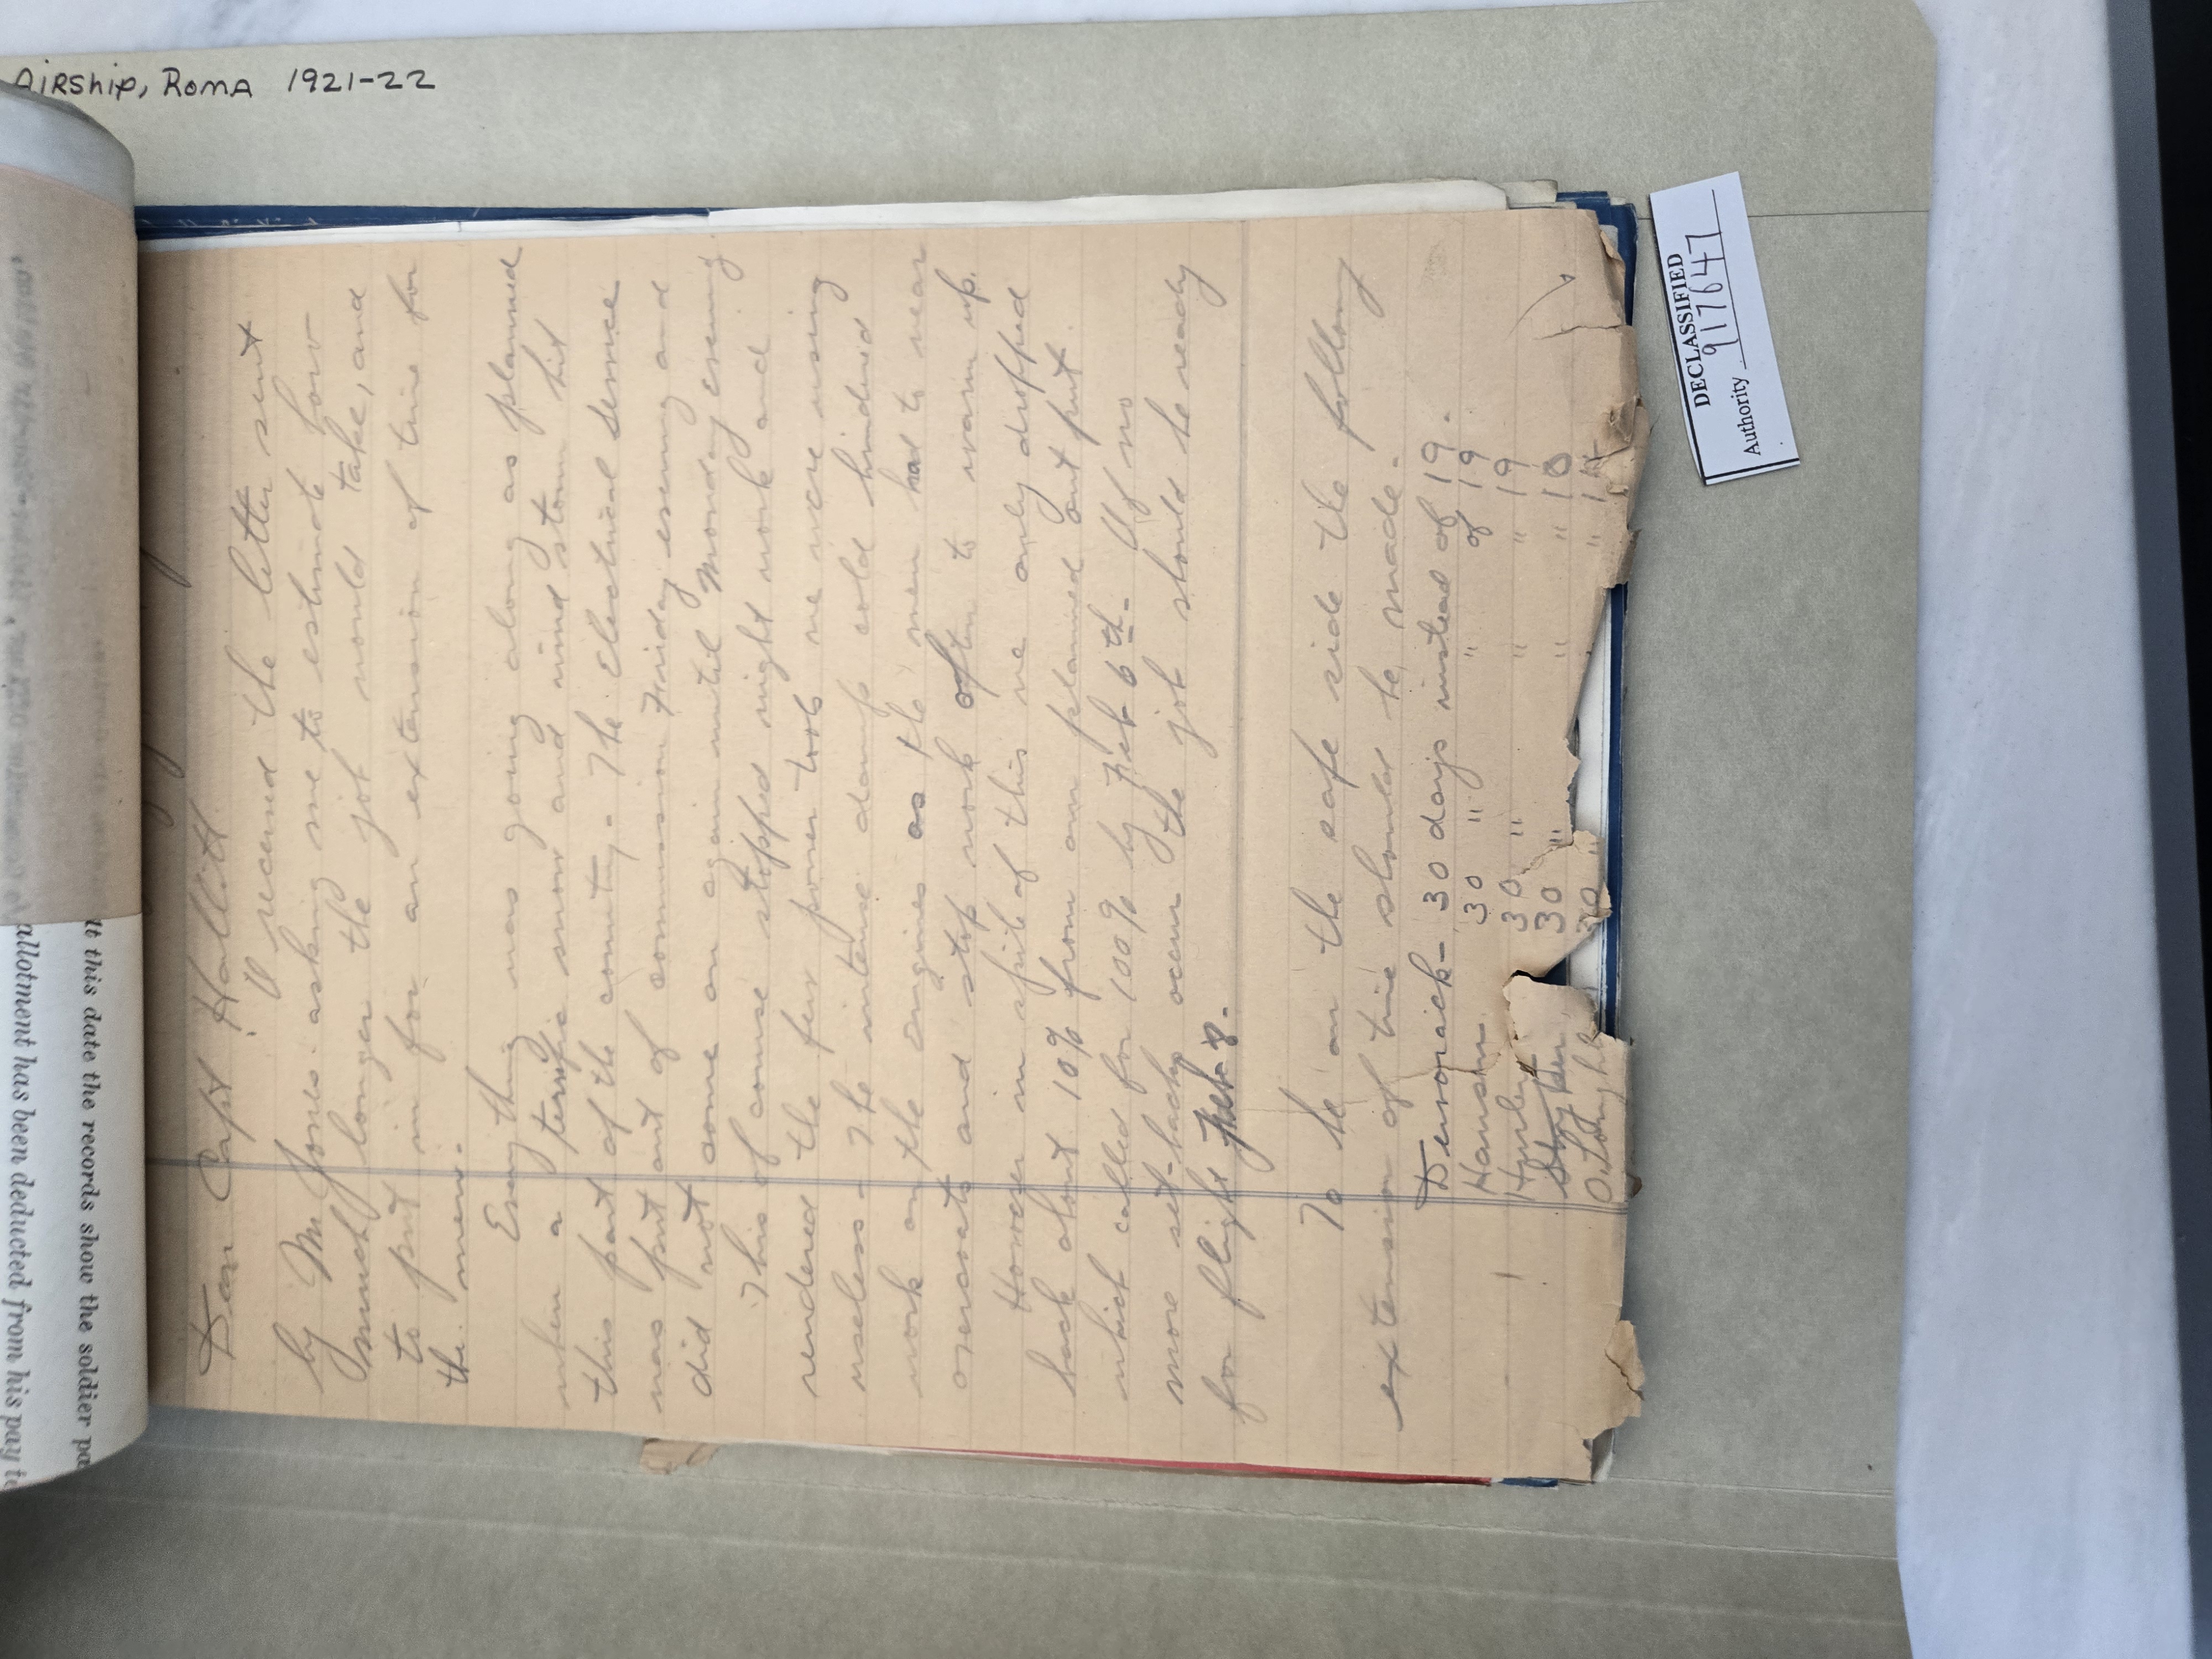 allotment has been deducted from his pay t
t this date the records show the soldier pa
AIRShip, RomA 1921-22
Dear Capt Hallitt
I received the letter sent
by Mr Jones. asking me to estimate how
much longer the job would take, and
to put in for an extension of time for
the men.
Everything was going along as planned
when a terrific snow and wind storm hit
this part of the country. The Electrical Service
was put out of commission Friday evening and
did not come on again until Monday evening.
This of course stopped night work and
rendered the few power tools we were using
useless - The intense damp cold hindered
work on the engines as the men had to wear
overcoats and stop work often to warm up.
However in spite of this we only dropped
back about 10% from our planned out put
which called for 100% by Feb 6th - If no
more set-backs occur the job should be ready
for flight Feb 8.
To be on the safe side the following
extension of time should be made.
Dervorack - 30 days instead of 19.
Hansen 30 " " of 19
Hurley 30 " " " 19
Stryker 30 " " " 10
O.Loughl 30 " " 14
DECLASSIFIED
Authority 917647